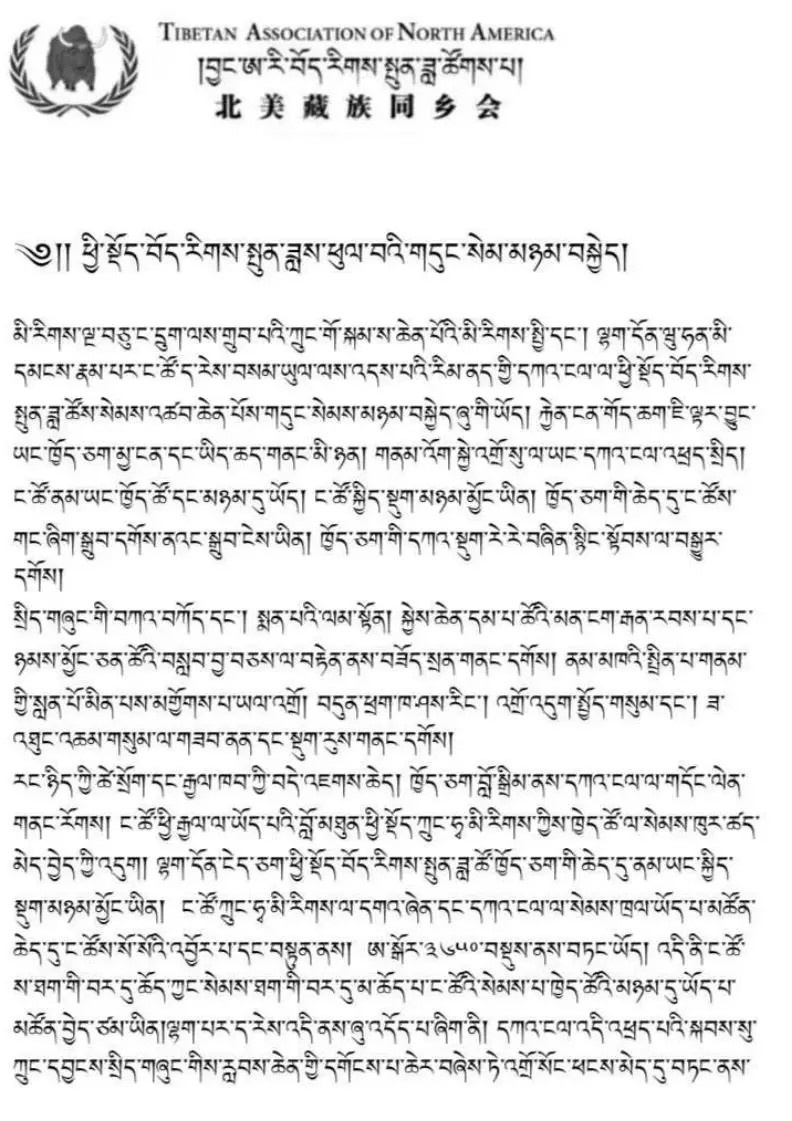 TIBETAN ASSOCIATION OF NORTH AMERICA
།བྱང་ཨ་རི་བོད་རིགས་སྤུན་ཟླ་ཚོགས་པ།
北美藏族同乡会
༄༅།། ཕྱི་སྡོད་བོད་རིགས་སྤུན་ཟླས་ཕུལ་བའི་གདུང་སེམ་མཉམ་བསྐྱེད།
མི་རིགས་ལྔ་བཅུ་ང་དྲུག་ལས་གྲུབ་པའི་ཀྲུང་གོ་སྐམ་ས་ཆེན་པོའི་མི་རིགས་སྤྱི་དང་། ལྷག་དོན་ཝུ་ཧན་མི་
དམངས་རྣམ་པར་ང་ཚོ་ད་རེས་བསམ་ཡུལ་ལས་འདས་པའི་རིམ་ནད་ཀྱི་དཀའ་ངལ་ལ་ཕྱི་སྡོད་བོད་རིགས་
སྤུན་ཟླ་ཚོས་སེམས་འཚབ་ཆེན་པོས་གདུང་སེམས་མཉམ་བསྐྱེད་ཞུ་གི་ཡོད། རྐྱེན་ངན་གོད་ཆག་ཇི་ལྟར་བྱུང་
ཡང་ཁྱོད་ཅག་མྱ་ངན་དང་ཡིད་ཆད་གནང་མི་ཉན། གནམ་འོག་སྐྱེ་འགྲོ་སུ་ལ་ཡང་དཀའ་ངལ་འཕྲད་སྲིད།
ང་ཚོ་ནམ་ཡང་ཁྱོད་ཚོ་དང་མཉམ་དུ་ཡོད། ང་ཚོ་སྐྱིད་སྡུག་མཉམ་མྱོང་ཡིན། ཁྱོད་ཅག་གི་ཆེད་དུ་ང་ཚོས་
གང་ཞིག་སྒྲུབ་དགོས་ནའང་སྒྲུབ་ངེས་ཡིན། ཁྱོད་ཅག་གི་དཀའ་སྡུག་རེ་རེ་བཞིན་སྙིང་སྟོབས་ལ་བསྒྱུར་
དགོས།
སྲིད་གཞུང་གི་བཀའ་བཀོད་དང་། སྨན་པའི་ལམ་སྟོན། སྐྱེས་ཆེན་དམ་པ་ཚོའི་མན་ངག་རྒན་རབས་པ་དང་
ཉམས་མྱོང་ཅན་ཚོའི་བསླབ་བྱ་བཅས་ལ་བརྟེན་ནས་བཟོད་སྲན་གནང་དགོས། ནམ་མཁའི་སྤྲིན་པ་གནམ་
གྱི་སླན་པོ་མིན་པས་མགྱོགས་པ་ཡལ་འགྲོ། བདུན་ཕྲག་ཁ་ཤས་རིང་། འགྲོ་འདུག་སྤྱོད་གསུམ་དང་། ཟ་
འཐུང་འཆམ་གསུམ་ལ་གཟབ་ནན་དང་སྡུག་རུས་གནང་དགོས།
རང་ཉིད་ཀྱི་ཚེ་སྲོག་དང་རྒྱལ་ཁབ་ཀྱི་བདེ་འཇགས་ཆེད། ཁྱོད་ཅག་བློ་སྒྲིམ་ནས་དཀའ་ངལ་ལ་གདོང་ལེན་
གནང་རོགས། ང་ཚོ་ཕྱི་རྒྱལ་ལ་ཡོད་པའི་བློ་མཐུན་ཕྱི་སྡོད་ཀྲུང་ཧྭ་མི་རིགས་ཀྱིས་ཁྱེད་ཚོ་ལ་སེམས་ཁུར་ཚད་
མེད་བྱེད་ཀྱི་འདུག། ལྷག་དོན་ངེད་ཅག་ཕྱི་སྡོད་བོད་རིགས་སྤུན་ཟླ་ཚོ་ཁྱོད་ཅག་གི་ཆེད་དུ་ནམ་ཡང་སྐྱིད་
སྡུག་མཉམ་མྱོང་ཡིན། ང་ཚོ་ཀྲུང་ཧྭ་མི་རིགས་ལ་དགའ་ཞེན་དང་དཀའ་ངལ་ལ་སེམས་ཁྲལ་ཡོད་པ་མཚོན་
ཆེད་དུ་ང་ཚོས་སོ་སོའི་འབྱོར་པ་དང་བསྟུན་ནས། ཨ་སྒོར་༣༦༥༠་བསྡུས་ནས་བཏང་ཡོད། འདི་ནི་ང་ཚོ་
ས་ཐག་གི་བར་དུ་ཆོད་ཀྱང་སེམས་ཐག་གི་བར་དུ་མ་ཆོད་པ་ང་ཚོའི་སེམས་པ་ཁྱེད་ཚོའི་མཉམ་དུ་ཡོད་པ་
མཚོན་བྱེད་ཙམ་ཡིན།ལྷག་པར་ད་རེས་འདི་ནས་ཞུ་འདོད་པ་ཞིག་ནི། དཀའ་ངལ་འདི་འཕྲད་པའི་སྐབས་སུ་
ཀྲུང་དབྱངས་སྲིད་གཞུང་གིས་རླབས་ཆེན་གྱི་དགོངས་པ་ཆེར་བཞེས་ཏེ་འགྲོ་སོང་ཕངས་མེད་དུ་བཏང་ནས་